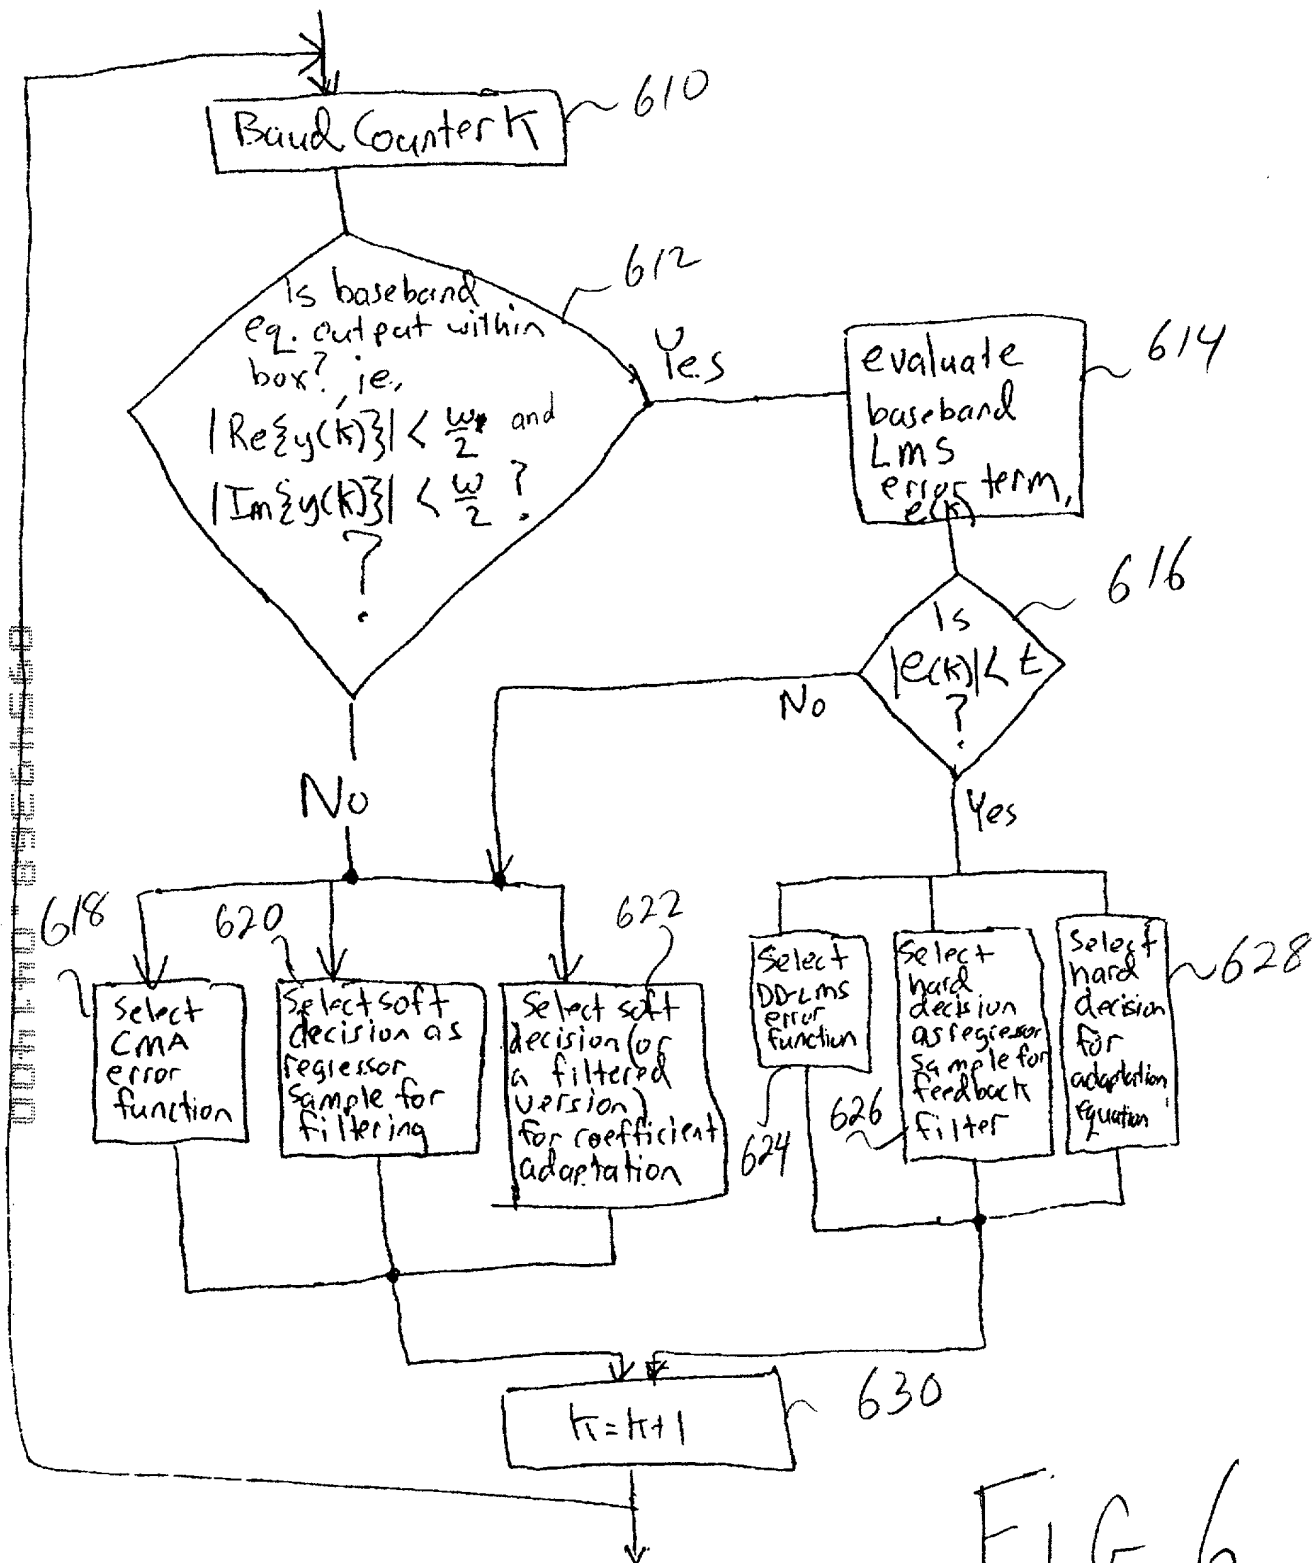 610
Baud Counter K
612
Is baseband
eq. output within
box? ie.,
|Re{y(k)}| < w/2 and
|Im{y(k)}| < w/2 ?
?
Yes
614
evaluate
baseband
LMS
error term,
e(k)
616
Is
|e(k)| < t
?
No
Yes
No
618
Select
CMA
error
function
620
Select soft
decision as
regressor
sample for
filtering
622
Select soft
decision (or
a filtered
version)
for coefficient
adaptation
624
Select
DD-LMS
error
function
626
Select
hard
decision
as regressor
sample for
feedback
filter
628
Select
hard
decision
for
adaptation
equation
630
K=K+1
FIG 6